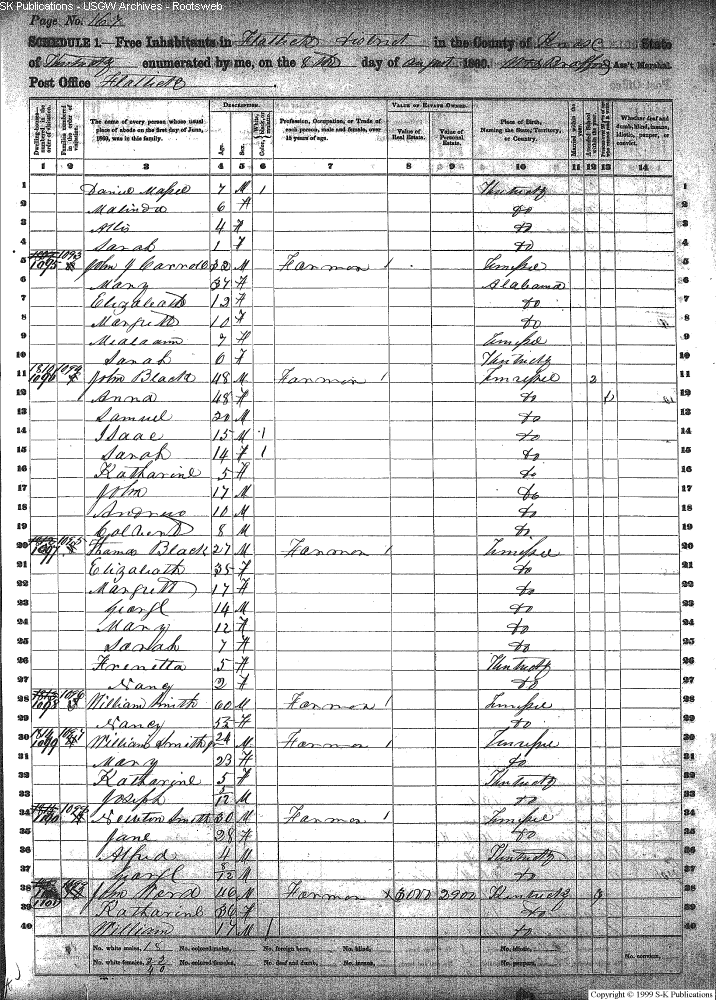 SK Publications - USGW Archives - Rootsweb
Page No. 167
SCHEDULE 1.—Free Inhabitants in Flatlick District in the County of Knox State
of Kentucky enumerated by me, on the 8th day of August 1860. Ass't Marshal.
Post Office Flatlick
Dwelling-houses—numbered in the order of visitation.
Families numbered in the order of visitation.
The name of every person whose usual place of abode on the first day of June, 1860, was in this family.
DESCRIPTION.
Age.
Sex.
Color, White, black, or mulatto.
Profession, Occupation, or Trade of each person, male and female, over 15 years of age.
VALUE OF ESTATE OWNED.
Value of Real Estate.
Value of Personal Estate.
Place of Birth, Naming the State, Territory, or Country.
Married within the year.
Attended School within the year.
Whether deaf and dumb, blind, insane, idiotic, pauper, or convict.
1 2 3 4 5 6 7 8 9 10 11 12 13 14
1 7 M 1 Kentucky 1
2 Malinda 6 F do 2
3 4 F do 3
4 Sarah 1 F do 4
5 1095 1093 John J Carroll 32 M Farmer 1 Tennessee 5
6 Mary 37 F Alabama 6
7 Elizabeth 12 F do 7
8 Margrett 10 F do 8
9 7 F Tennessee 9
10 Sarah 6 F Kentucky 10
11 1096 1094 John Black 48 M Farmer 1 Tennessee 2 11
12 Anna 48 F do 12
13 Samuel 20 M do 13
14 Isaac 15 M 1 do 14
15 Sarah 14 F 1 do 15
16 Katharine 5 F do 16
17 John 17 M do 17
18 Andrew 10 M do 18
19 8 M do 19
20 1097 1095 Thomas Black 27 M Farmer 1 Tennessee 20
21 Elizabeth 35 F do 21
22 Margrett 17 F do 22
23 Georgl 14 M do 23
24 Mary 12 F do 24
25 Sarah 7 F do 25
26 5 F Kentucky 26
27 Nancy 2 F do 27
28 1098 1096 William Smith 60 M Farmer 1 Tennessee 28
29 Nancy 52 F do 29
30 1099 1097 William Smith jr 24 M Farmer 1 Tennessee 30
31 Mary 23 F do 31
32 Katharine 5 F Kentucky 32
33 Joseph 5/12 M do 33
34 1100 1098 Newton Smith 30 M Farmer 1 Tennessee 34
35 Jane 28 F do 35
36 Alfred 4 M Kentucky 36
37 Georgl 8/12 M do 37
38 1101 46 M Farmer 3000 2900 Kentucky 38
39 Katharine 36 F do 39
40 William 17 M 1 do 40
No. white males, 18 No. colored males, No. foreign born, No. blind, No. idiotic, No. convicts,
No. white females, 22 No. colored females, No. deaf and dumb, No. insane, No. paupers,
40
Copyright © 1999 S-K Publications